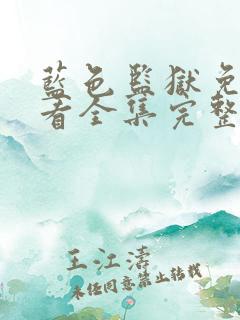 藍色監獄免
看全集完整
王江濤
未经同意禁止转载